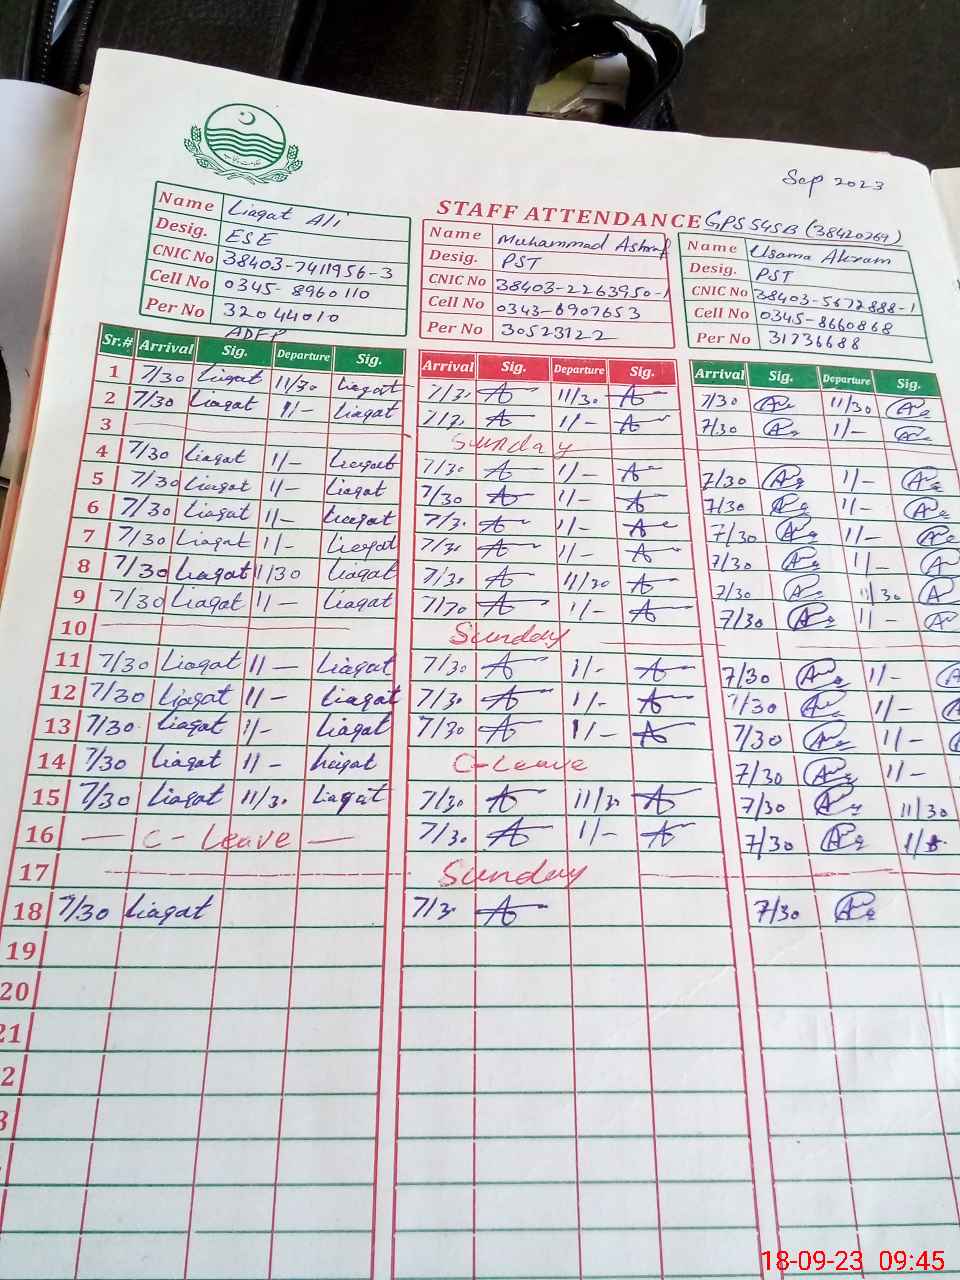 Sep 2023
STAFF ATTENDANCE GPS 54SB (38420769)
Name Liaqat Ali
Desig. ESE
CNIC No 38403-7411956-3
Cell No 0345-8960110
Per No 32044010
ADFP
Name Muhammad Ashraf
Desig. PST
CNIC No 38403-2263950-1
Cell No 0343-6907653
Per No 30523122
Name Usama Akram
Desig. PST
CNIC No 38403-5672888-1
Cell No 0345-8660868
Per No 31736688
Sr.# Arrival Sig. Departure Sig. Arrival Sig. Departure Sig. Arrival Sig. Departure Sig.
1 7/30 Liaqat 11/30 Liaqat 7/3. 11/30 7/30 11/30
2 7/30 Liaqat 11/- Liaqat 7/3. 11/- 7/30 11/-
3 Sunday
4 7/30 Liaqat 11/- Liaqat 7/30 11/- 7/30 11/-
5 7/30 Liaqat 11/- Liaqat 7/30 11/- 7/30 11/-
6 7/30 Liaqat 11/- Liaqat 7/3. 11/- 7/30 11/-
7 7/30 Liaqat 11/- Liaqat 7/3. 11/- 7/30 11/-
8 7/30 Liaqat 11/30 Liaqat 7/3. 11/30 7/30 11/30
9 7/30 Liaqat 11/- Liaqat 7/30 11/- 7/30 11/-
10 Sunday
11 7/30 Liaqat 11/- Liaqat 7/30 11/- 7/30 11/-
12 7/30 Liaqat 11/- Liaqat 7/30 11/- 7/30 11/-
13 7/30 Liaqat 11/- Liaqat 7/30 11/- 7/30 11/-
14 7/30 Liaqat 11/- Liaqat C-Leave 7/30 11/-
15 7/30 Liaqat 11/3. Liaqat 7/30 11/30 7/30 11/30
16 — C-Leave — 7/30 11/- 7/30 11/-
17 Sunday
18 7/30 Liaqat 7/3. 7/30
19
20
21
2
3
18-09-23 09:45